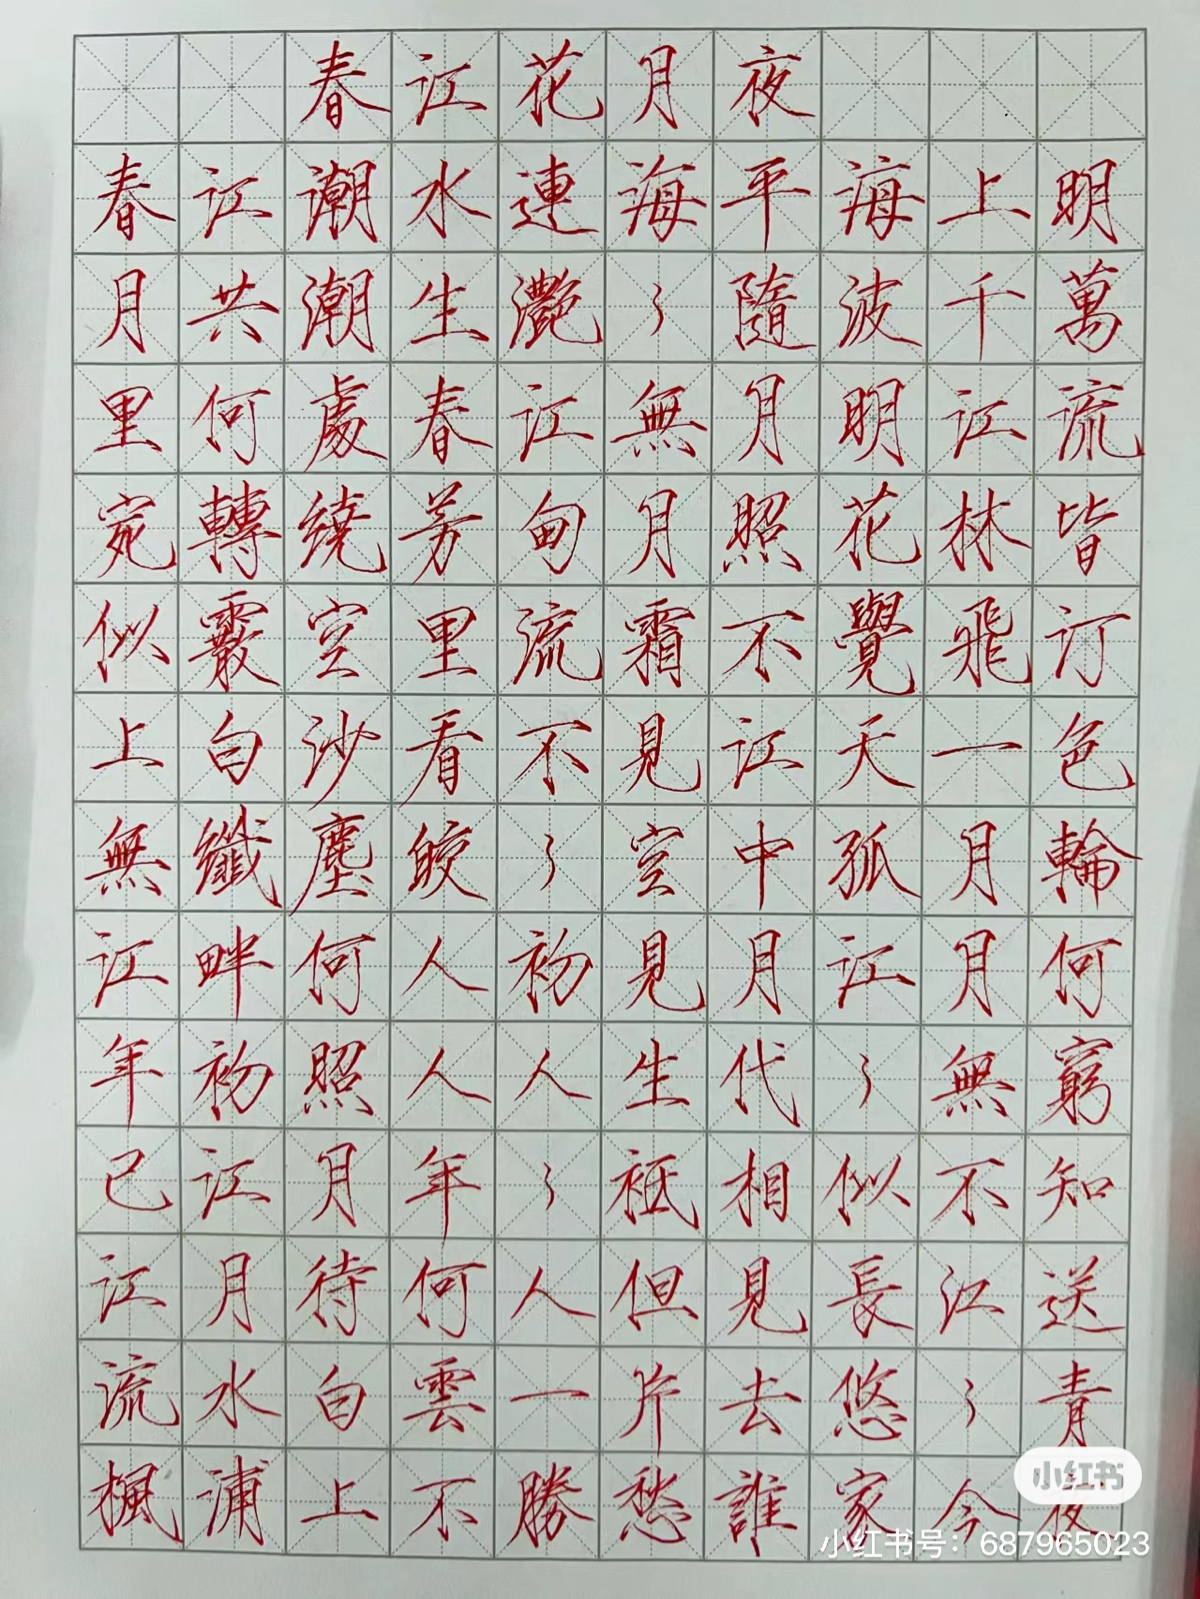 春江花月夜
春江潮水連海平海上明
月共潮生灩〻隨波千萬
里何處春江無月明江流
宛轉繞芳甸月照花林皆
似霰空里流霜不覺飛汀
上白沙看不見江天一色
無纖塵皎〻空中孤月輪
江畔何人初見月江月何
年初照人人生代〻無窮
已江月年〻祗相似不知
江月待何人但見長江送
流水白雲一片去悠〻青
楓浦上不勝愁誰家今夜
小红书
小红书号：687965023